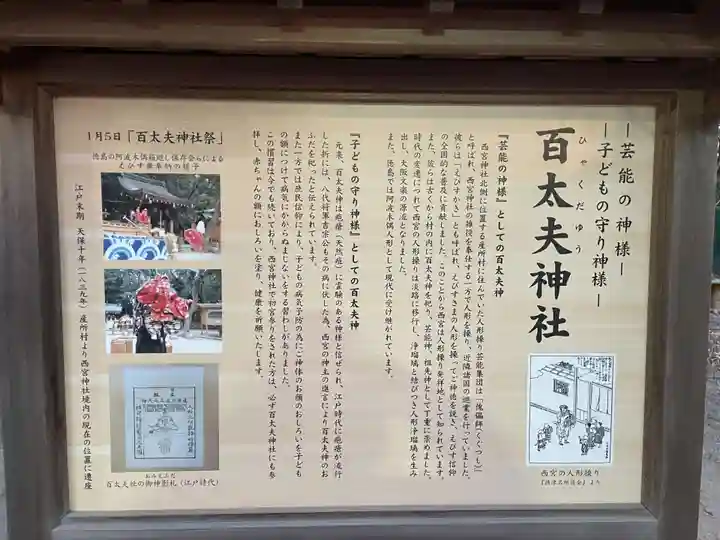 ―芸能の神様―
―子どもの守り神様―
百太夫神社
ひゃくだゆう
西宮の人形操り
『摂津名所図会』より
『芸能の神様』としての百太夫神
西宮神社北側に位置する産所村に住んでいた人形操り芸能集団は「傀儡師（くぐつし）」
と呼ばれ、西宮神社の雑役を奉仕する一方で人形を操り、近隣諸国の巡業を行っていました。
彼らは「えびすかき」とも呼ばれ、えびすさまの人形を操ってご神徳を説き、えびす信仰
の全国的な普及に貢献しました。このことから西宮は人形操り発祥地として知られています。
また、彼らは古くから村の内に百太夫神を祀り、芸能神、祖先神として丁重に崇めました。
時代の変遷につれて西宮の人形操りは淡路に移行し、浄瑠璃と結びつき人形浄瑠璃を生み
出し、大阪文楽の源流となりました。
また、徳島では阿波木偶人形として現代に受け継がれています。
『子どもの守り神様』としての百太夫神
元来、百太夫神は疱瘡（天然痘）に霊験のある神様と信ぜられ、江戸時代に疱瘡が流行
した折には、八代将軍吉宗公もその病に伏した為、西宮の神主の進言により百太夫神のお
ふだを祀ったと伝えられています。
また一方では庶民信仰により、子どもの病気予防の為にご神体のお顔のおしろいを子ども
の額につけて病気にかからぬまじないをする習わしがありました。
この慣習は今でも続いており、西宮神社で初宮参りをされた方は、必ず百太夫神社にも参
拝し、赤ちゃんの額におしろいを塗り、健康を祈願いたします。
1月5日「百太夫神社祭」
徳島の阿波木偶箱廻し保存会らによる
えびす舞奉納の様子
おみえふだ
百太夫社の御神影札（江戸時代）
江戸末期　天保十年（一八三九年）産所村より西宮神社境内の現在の位置に遷座